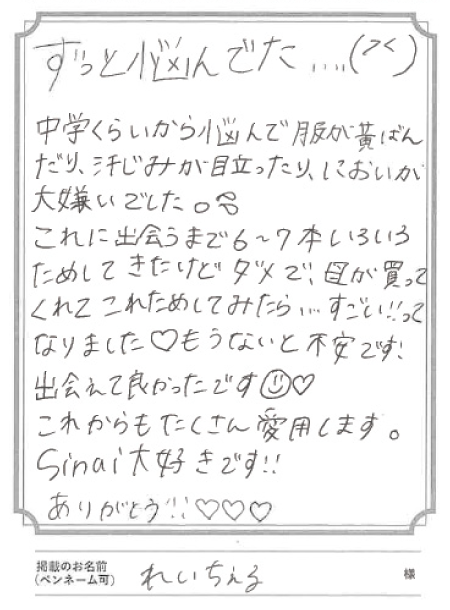 ずっと悩んでた....(>く)
中学くらいから悩んで服が黄ばん
だり、汗じみが目立ったり、においが
大嫌いでした。
これに出会うまで6〜7本いろいろ
ためしてきたけどダメで、母が買って
くれてこれためしてみたら...すごい!!って
なりました♡もうないと不安です!
出会えて良かったです☺♡
これからもたくさん愛用します。
Sinai大好きです!!
ありがとう!!♡♡♡
掲載のお名前
(ペンネーム可) れいちぇる 様